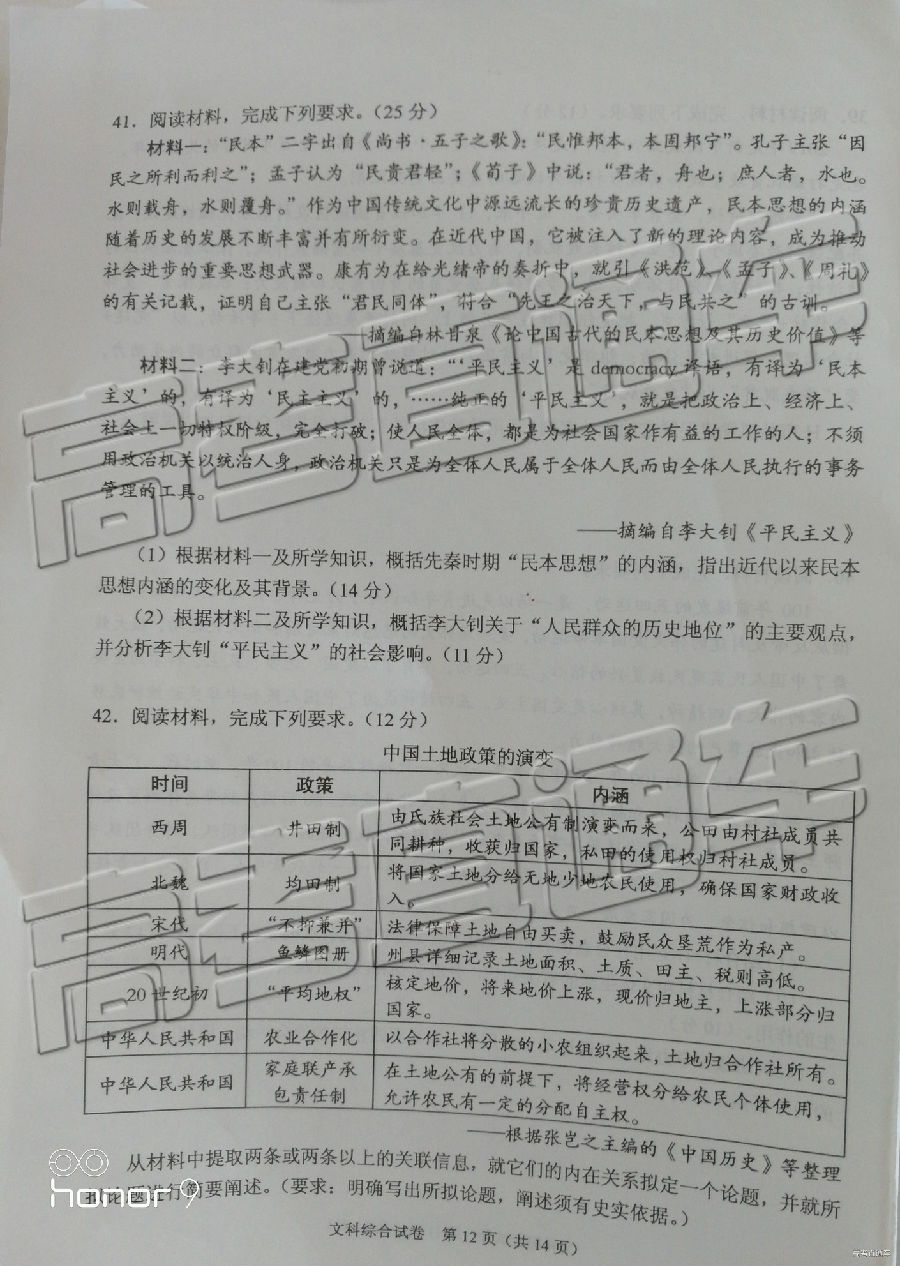 41．阅读材料，完成下列要求。（25 分）
材料一：“民本”二字出自《尚书·五子之歌》：“民惟邦本，本固邦宁”。孔子主张“因
民之所利而利之”；孟子认为“民贵君轻”；《荀子》中说：“君者，舟也；庶人者，水也。
水则载舟，水则覆舟。”作为中国传统文化中源远流长的珍贵历史遗产，民本思想的内涵
随着历史的发展不断丰富并有所衍变。在近代中国，它被注入了新的理论内容，成为推动
社会进步的重要思想武器。康有为在给光绪帝的奏折中，就引《洪范》、《孟子》、《周礼》
的有关记载，证明自己主张“君民同体”，符合“先王之治天下，与民共之”的古训。
——摘编自林甘泉《论中国古代的民本思想及其历史价值》等
材料二：李大钊在建党初期曾说道：“‘平民主义’是 democracy 译语，有译为‘民本
主义’的，有译为‘民主主义’的，……纯正的‘平民主义’，就是把政治上、经济上、
社会上一切特权阶级，完全打破；使人民全体，都是为社会国家作有益的工作的人；不须
用政治机关以统治人身，政治机关只是为全体人民属于全体人民而由全体人民执行的事务
管理的工具。
——摘编自李大钊《平民主义》
（1）根据材料一及所学知识，概括先秦时期“民本思想”的内涵，指出近代以来民本
思想内涵的变化及其背景。（14 分）
（2）根据材料二及所学知识，概括李大钊关于“人民群众的历史地位”的主要观点，
并分析李大钊“平民主义”的社会影响。（11 分）
42．阅读材料，完成下列要求。（12 分）
中国土地政策的演变
时间 政策 内涵
西周 井田制 由氏族社会土地公有制演变而来，公田由村社成员共
同耕种，收获归国家，私田的使用权归村社成员。
北魏 均田制 将国家土地分给无地少地农民使用，确保国家财政收
入。
宋代 “不抑兼并” 法律保障土地自由买卖，鼓励民众垦荒作为私产。
明代 鱼鳞图册 州县详细记录土地面积、土质、田主、税则高低。
20 世纪初 “平均地权” 核定地价，将来地价上涨，现价归地主，上涨部分归
国家。
中华人民共和国 农业合作化 以合作社将分散的小农组织起来，土地归合作社所有。
中华人民共和国 家庭联产承
包责任制 在土地公有的前提下，将经营权分给农民个体使用，
允许农民有一定的分配自主权。
——根据张岂之主编的《中国历史》等整理
从材料中提取两条或两条以上的关联信息，就它们的内在关系拟定一个论题，并就所
拟论题进行简要阐述。（要求：明确写出所拟论题，阐述须有史实依据。）
文科综合试卷 第 12 页（共 14 页）
高考直通车
高考直通车
honor 9